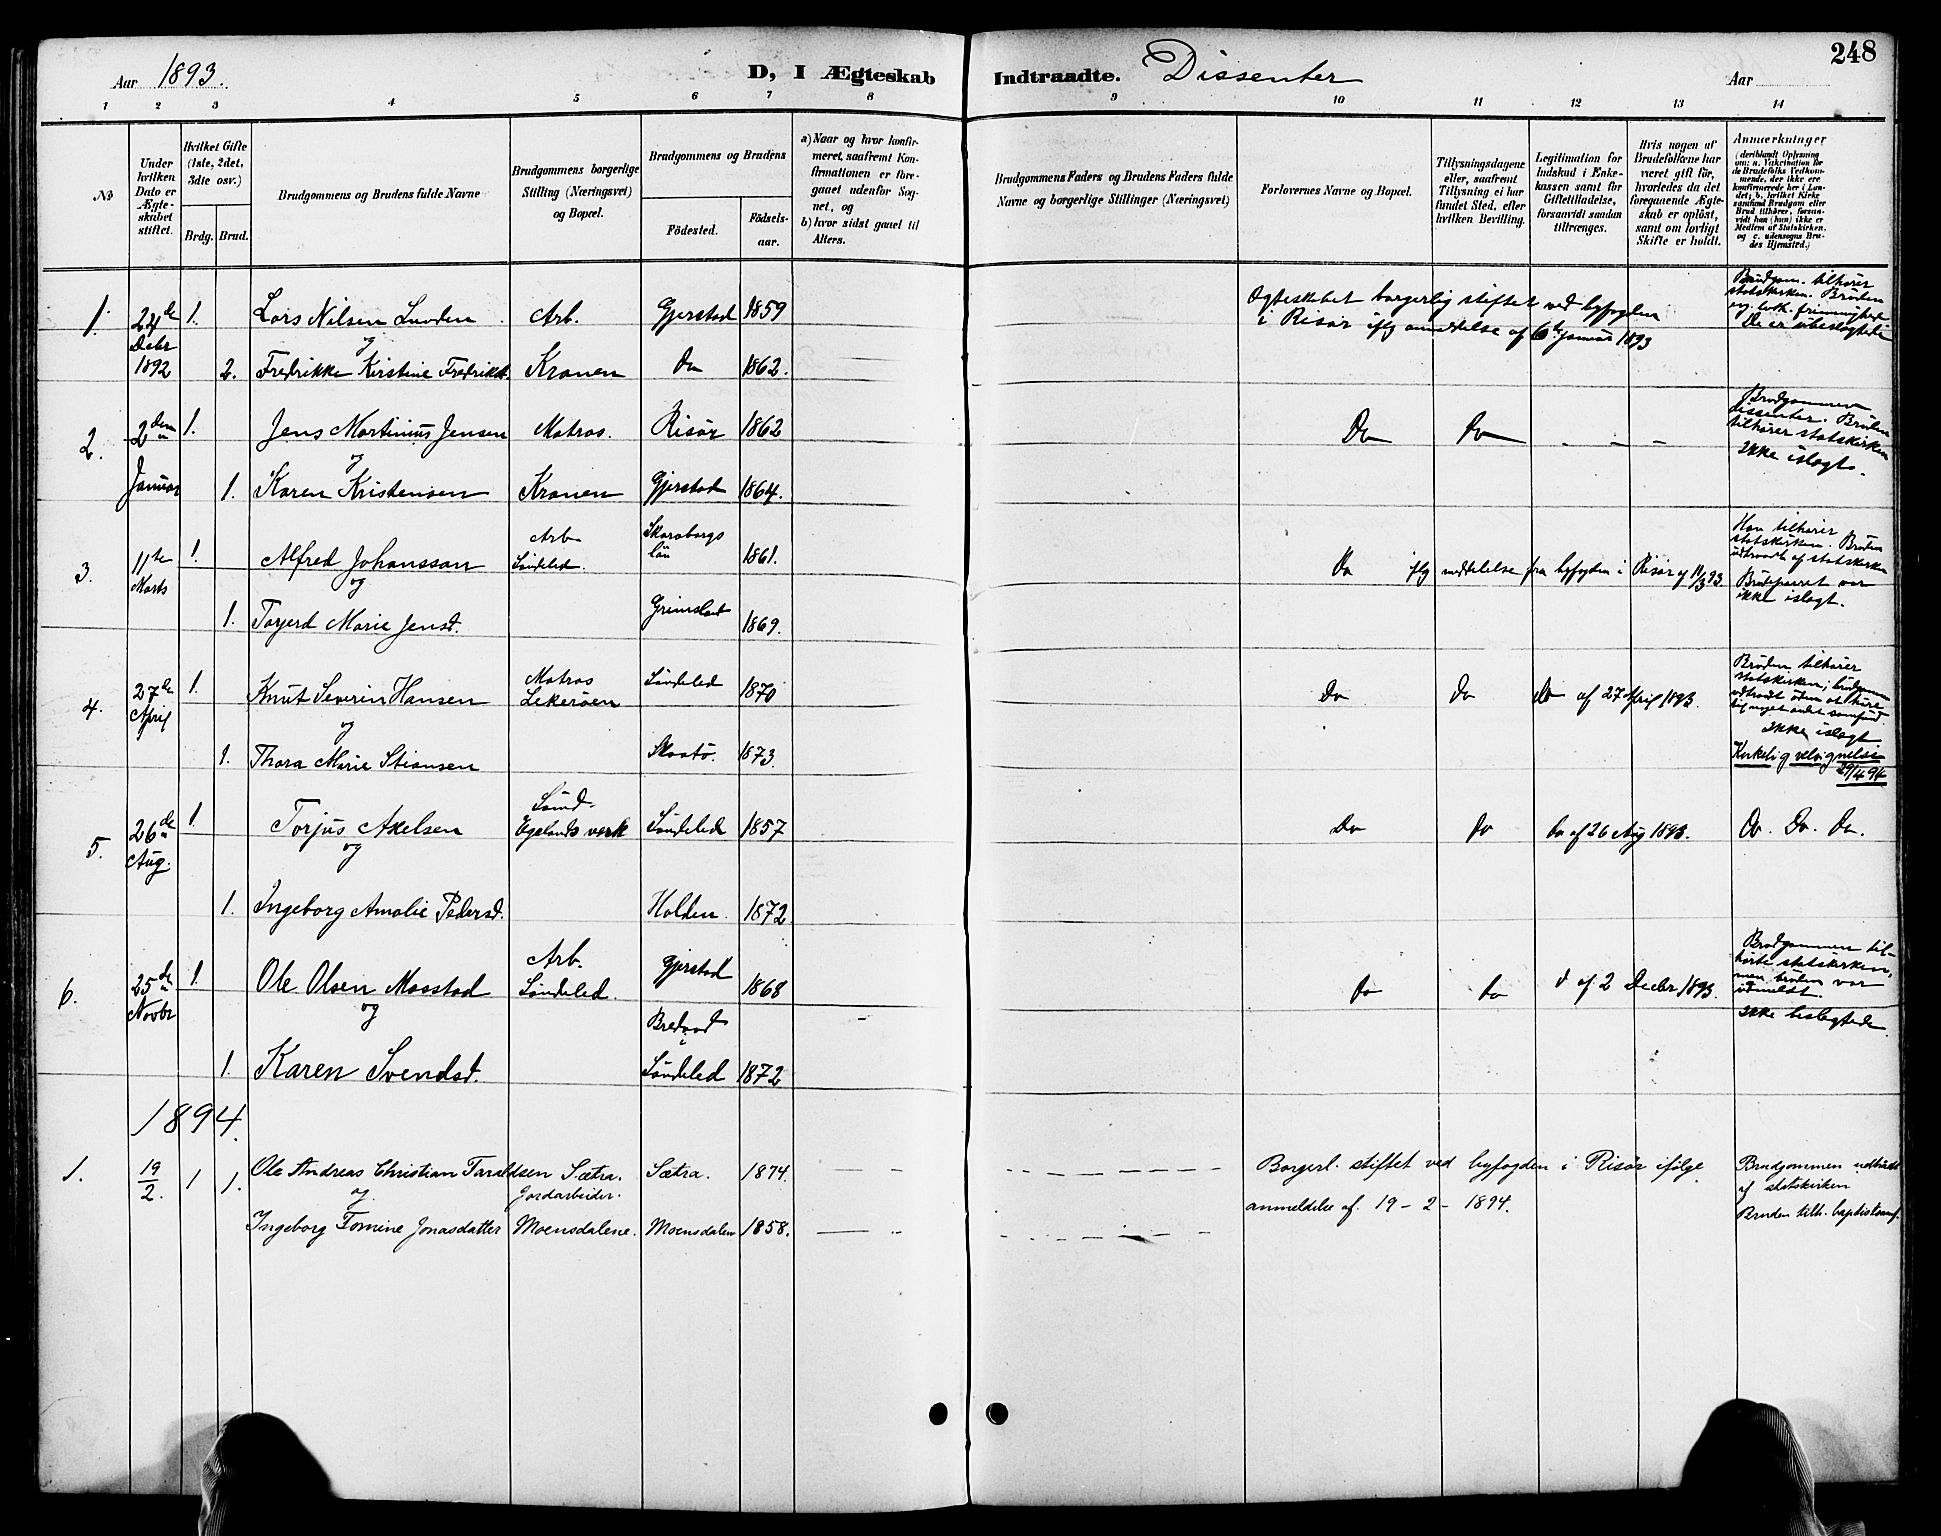 Aar 1893. D, I Ægteskab Indtraadte. Dissenter Aar 248
1 2 3 4 5 6 7 8 9 10 11 12 13 14
No
Under hvilken Dato er Ægteskabet stiftet.
Hvilket Gifte (1ste, 2det, 3die osv.)
Brdg. Brud.
Brudgommens og Brudens fulde Navne
Brudgommens borgerlige Stilling (Næringsvei) og Bopæl.
Brudgommens og Brudens
Födested.
Födsels-aar.
a) Naar og hvor konfirmeret, saafremt Konfirmationen er foregaaet udenfor Sognet, og
b) hvor sidst gaaet til Alters.
Brudgommens Faders og Brudens Faders fulde Navne og borgerlige Stillinger (Næringsvei)
Forlovernes Navne og Bopæl.
Tillysningsdagene eller, saafremt Tillysning ei har fundet Sted, efter hvilken Bevilling.
Legitimation for Indskud i Enkekassen samt for Giftetilladelse, forsaavidt saadan tiltrænges.
Hvis nogen af Brudefolkene har været gift för, hvorledes da det foregaaende Ægteskab er oplöst, samt om lovligt Skifte er holdt.
Anmærkninger
(deriblandt Oplysning om: a. Vakcination for de Brudefolks Vedkommende, der ikke ere konfirmerede her i Landet; b. hvilket Kirkesamfund Brudgom eller Brud tilhörer, forsaavidt han (hun) ikke er Medlem af Statskirken, og c. udensogns Brudes Hjemsted.)
1. 24de Decbr 1892 1. Lars Nilsen Arb. Gjerstad 1859
og
2. Fredrikke Kirstine Fredriksd. Kranen Do 1862.
Ægteskabet borgerlig stiftet ved byfogden
i Risør iflg anmeldelse af 6te Januar 1893
Brudgom. tilhører
statskirken. Bruden
ev. luth. frimenighed
De er ubeslægtede
2. 2den Januar 1. Jens Martinius Jensen Matros. Risör 1862
og
1. Karen Kristensen Kranen Gjerstad 1864.
Do Do - - -
Brudgommen
dissenter. Bruden
tilhører statskirken
ikke i slægt.
3. 11te Marts 1. Alfred Johansson Arb Söndeled. Skaraborgs län 1861.
og
1. Torjerd Marie Jensd. Grimstad 1869.
Do iflg meddelelse fra byfogden i Risør af 11/3 93.
Han tilhører
statskirken. Bruden
udtraadt af statskirken
Brudeparret var
ikke i slægt.
4. 27de April 1. Knut Severin Hansen Matros Lekeröen Söndeled 1870
og
1. Thora Marie Stiansen Skaatö. 1873.
Do Do do af 27 April 1893.
Bruden tilhører
statskirken; brudgommen
udtraadt uden at høre
til noget andet samfund.
ikke i slægt
Kirkelig velsignelse
29/4 94
5. 26de Aug. 1. Torjus Axelsen Sönd. Egelands verk Söndeled 1857
og
1. Ingeborg Amalie Pedersd. Holden 1872
Do Do do af 26 Aug 1893. Do. Do. Do.
6. 25de Novbr 1. Ole Olsen Mosstad Arb. Söndeled. Gjerstad 1868
og
1. Karen Svendsd. Bredvad i Söndeled 1872
Do Do d af 2 Decbr 1893.
Brudgommen til-
hørte statskirken,
men bruden var
udmeldt.
ikke beslægtede
1894.
1. 19/2. 1 1. Ole Andreas Christian Taraldsen Sætra. Jordarbeider. Sætra. 1874.
og
Ingeborg Tomine Jonasdatter Moensdalene. Moensdalen 1858.
Borgerl. stiftet ved byfogden i Risør ifølge
anmeldelse af. 19 - 2 - 1894.
Brudgommen udtraadt
af statskirken
Bruden tilh. baptistsamf.